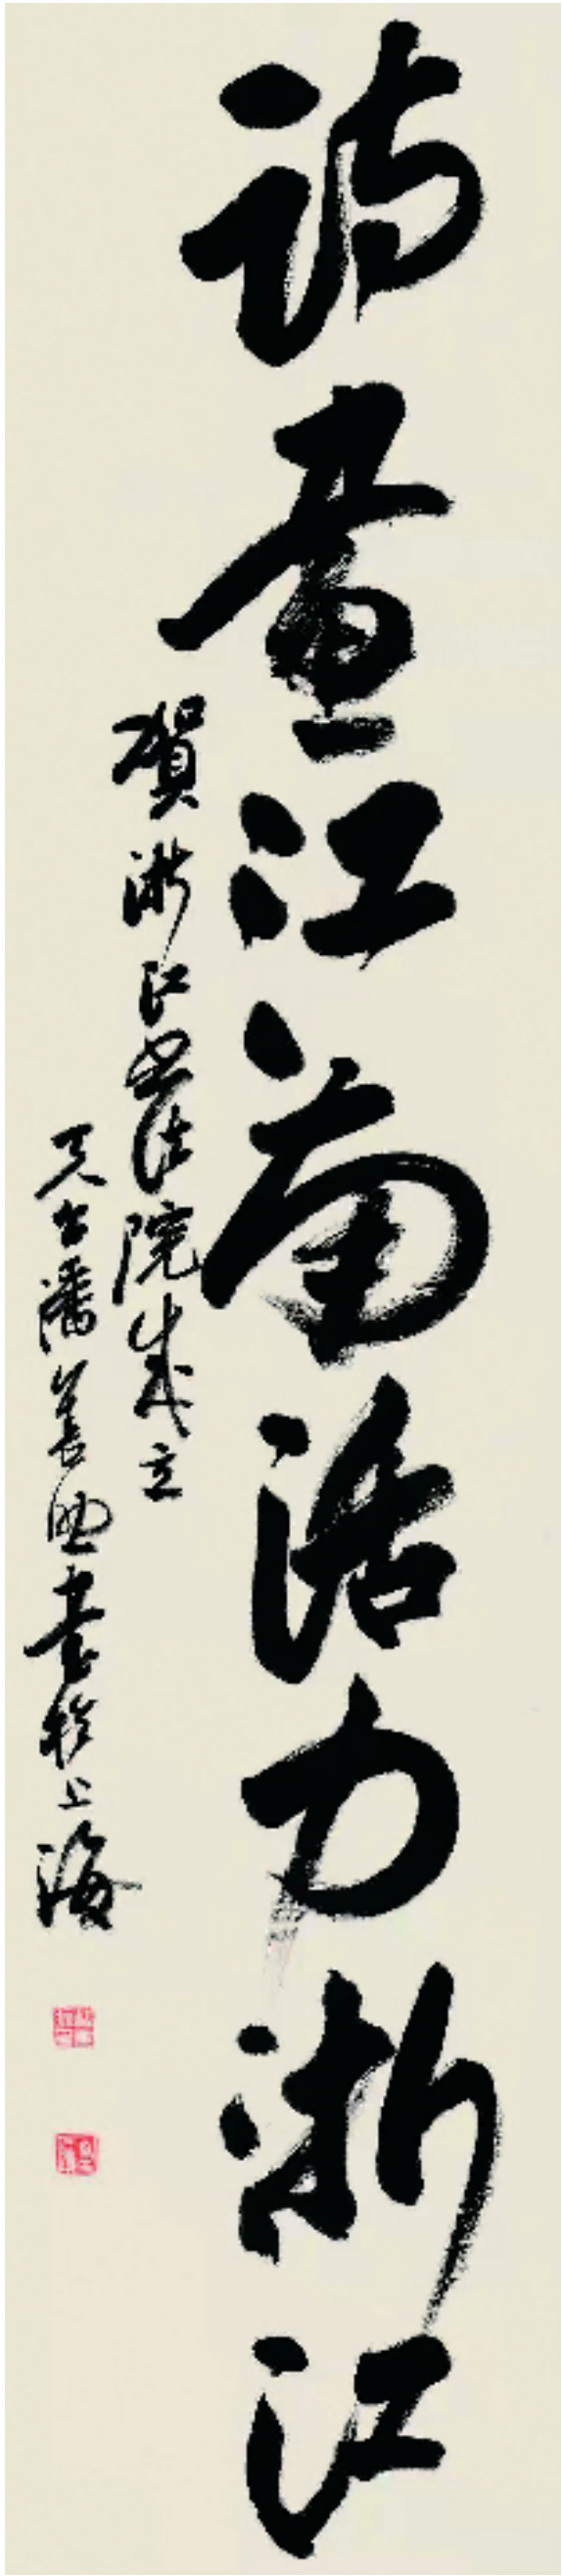 詩畫江南活力浙江
賀浙江書法院成立
天台潘善助書於上海